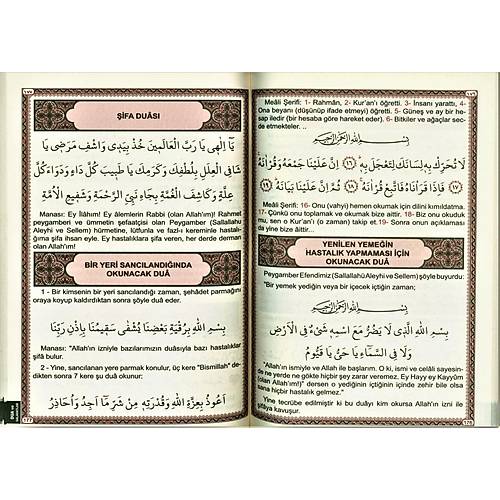 ŞİFA DUÂSI
يَا اِلٰهِى يَا رَبَّ الْعَالَمِينَ خُذْ بِيَدِى وَاشْفِ مَرْضِى يَا
شَافِىَ الْعِلَلِ بِلُطْفِكَ وَكَرَمِكَ يَا طَبِيبَ كُلِّ دَاءٍ وَدَوَاءَ كُلِّ
عِلَّةٍ وَكَاشِفَ الْغُمَّةِ بِجَاهِ نَبِىِّ الرَّحْمَةِ وَشَفِيعِ الْاُمَّةِ
Manası: Ey İlâhım! Ey âlemlerin Rabbi (olan Allah'ım)! Rahmet
peygamberi ve ümmetin şefaatçisi olan Peygamber (Sallallahu
Aleyhi ve Sellem) hürmetine, lütfunla ve fazl-ı kereminle hastalı-
ğıma şifa ihsan eyle. Ey hastalıklara şifa veren, her derde derman
olan Allah'ım!
BİR YERİ SANCILANDIĞINDA
OKUNACAK DUÂ
1 - Bir kimsenin bir yeri sancılandığı zaman, şehâdet parmağını
oraya koyup kaldırdıktan sonra şöyle duâ eder.
بِسْمِ اللّٰهِ بِرُقْيَةِ بَعْضِنَا يُشْفٰى سَقِيمُنَا بِاِذْنِ رَبِّنَا
Manası: "Allah'ın izniyle bazılarımızın duâsıyla bazı hastalıklar
şifâ bulur.
2 - Yine, sancılanan yere parmak konulur, üç kere "Bismillah" de-
dikten sonra 7 kere şu duâ okunur;
اَعُوذُ بِعِزَّةِ اللّٰهِ وَقُدْرَتِهِ مِنْ شَرِّ مَا اَجِدُ وَاُحَاذِرُ
177
Meâli Şerifi: 1- Rahmân, 2- Kur'an'ı öğretti. 3- İnsanı yarattı, 4-
Ona beyanı (düşünüp ifade etmeyi) öğretti. 5- Güneş ve ay bir he-
sap iledir (bir hesaba göre hareket eder). 6- Bitkiler ve ağaçlar sec-
de etmekteler. ..
بِسْمِ اللّٰهِ الرَّحْمٰنِ الرَّحِيمِ
لَا تُحَرِّكْ بِهِ لِسَانَكَ لِتَعْجَلَ بِهِ ﴿١٦﴾ اِنَّ عَلَيْنَا جَمْعَهُ وَقُرْاٰنَهُ
﴿١٧﴾ فَاِذَا قَرَاْنَاهُ فَاتَّبِعْ قُرْاٰنَهُ ﴿١٨﴾ ثُمَّ اِنَّ عَلَيْنَا بَيَانَهُ ﴿١٩﴾
Meâli Şerifi: 16- Onu (vahyi) hemen okumak için dilini kımıldatma.
17- Çünkü onu toplamak ve okumak bize aittir. 18- Biz onu okuduk
mu, sen o kur'an'ı (o zaman) takip et.19- Sonra onun açıklaması
da yine bize aittir...
YENİLEN YEMEĞİN
HASTALIK YAPMAMASI İÇİN
OKUNACAK DUÂ
Peygamber Efendimiz (Sallallahü Aleyhi ve Sellem) şöyle buyurdu:
"Bir yemek yediğin veya bir içecek içtiğin zaman;
بِسْمِ اللّٰهِ الرَّحْمٰنِ الرَّحِيمِ
بِسْمِ اللّٰهِ الَّذِى لَا يَضُرُّ مَعَ اسْمِهِ شَىْءٌ فِى الْاَرْضِ
وَلَا فِى السَّمَاءِ يَا حَىُّ يَا قَيُّومُ
"Allah'ın ismiyle ve Allah ile başlarım. O ki, ismi ve celâli sayesin-
de ne yerde ne gökte hiçbir şey zarar veremez. Ey Hayy ey Kayyûm
(olan Allah'ım!)" dersen o yediğinin içtiğinin içinde zehir bile olsa
sana hiçbir hastalık gelmez."
Yine tecrübe edilmiştir ki bu duâyı kim okursa Allah'ın izni ile
şifâya kavuşur.
178